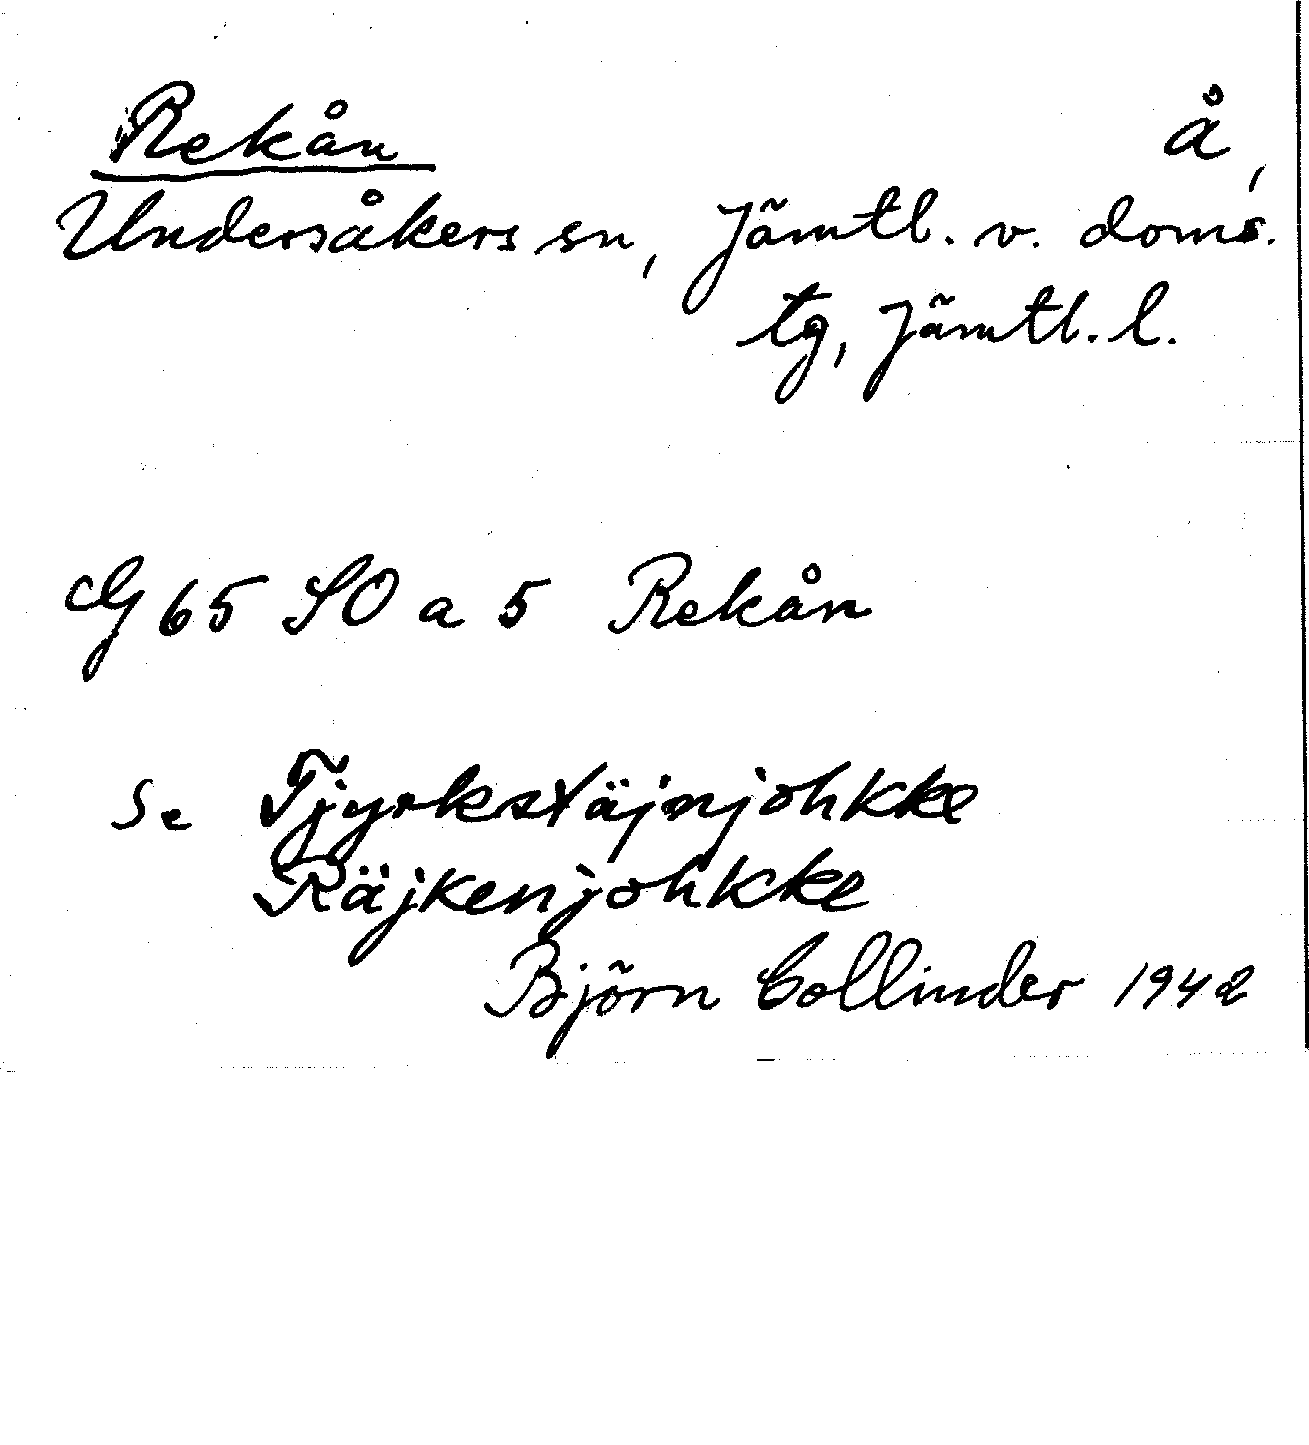 Rekån å,
Undersåkers sn, Jämtl. v. doms.
tg, Jämtl. l.
G 65 SO a 5 Rekån
Se Tjyrkstäjnjohkke
Räjkenjohkke
Björn Collinder 1942